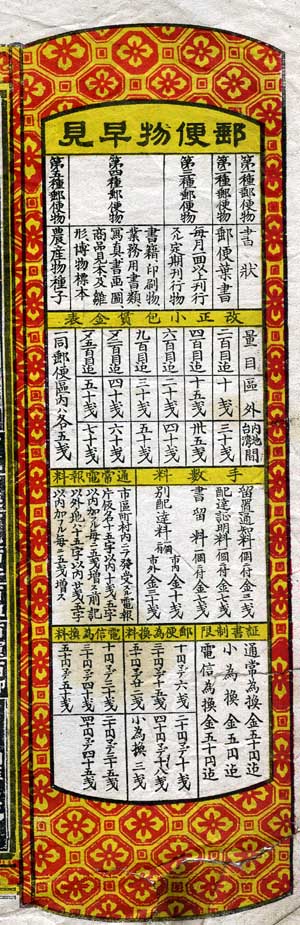 郵便物早見
第一種郵便物
書状
第二種郵便物
郵便葉書
第三種郵便物
毎月一回以上刊行
スル定期刊行物
第四種郵便物
書籍印刷物
業務用書類
寫真書画圖
商品見本及雛
形博物標本
第五種郵便物
農産物種子
改正小包賃金表
量目
区外
内地台湾間
二百目迄
十戔
三十戔
四百目迄
十五戔
卅五戔
六百目迄
二十戔
四十戔
九百目迄
三十戔
五十戔
メ二百目迄
四十戔
六十戔
メ五百目迄
五十戔
七十戔
同郵便區内ハ各五戔
手数料
留置通知料一個ニ付金二戔
配達証明料一個ニ付金三戔
書留料一個ニ付金七戔
別配達料
市内金十戔
市外金三十戔
通常電報料
市區町村内ニテ発受スル電報
片仮名十五字以内十戔五字
以内加フル毎ニ五戔増ス前記
以外ノ地ハ十五字以内廿戔五字
以内加フル毎ニ五戔増ス
証書制限
通常為換金五十円迄
小為換金五円迄
電信為換金五十円迄
郵便為換料
十円マデ六戔
二十円マデ十戔
三十円マデ十五戔
四十円マデ十八戔
五十円マデ二十二戔
小為換三戔
電信為換料
十円マデ二十五戔
二十円マデ三十五戔
三十円マデ四十戔
四十円マデ四十五戔
五十円マデ五十戔